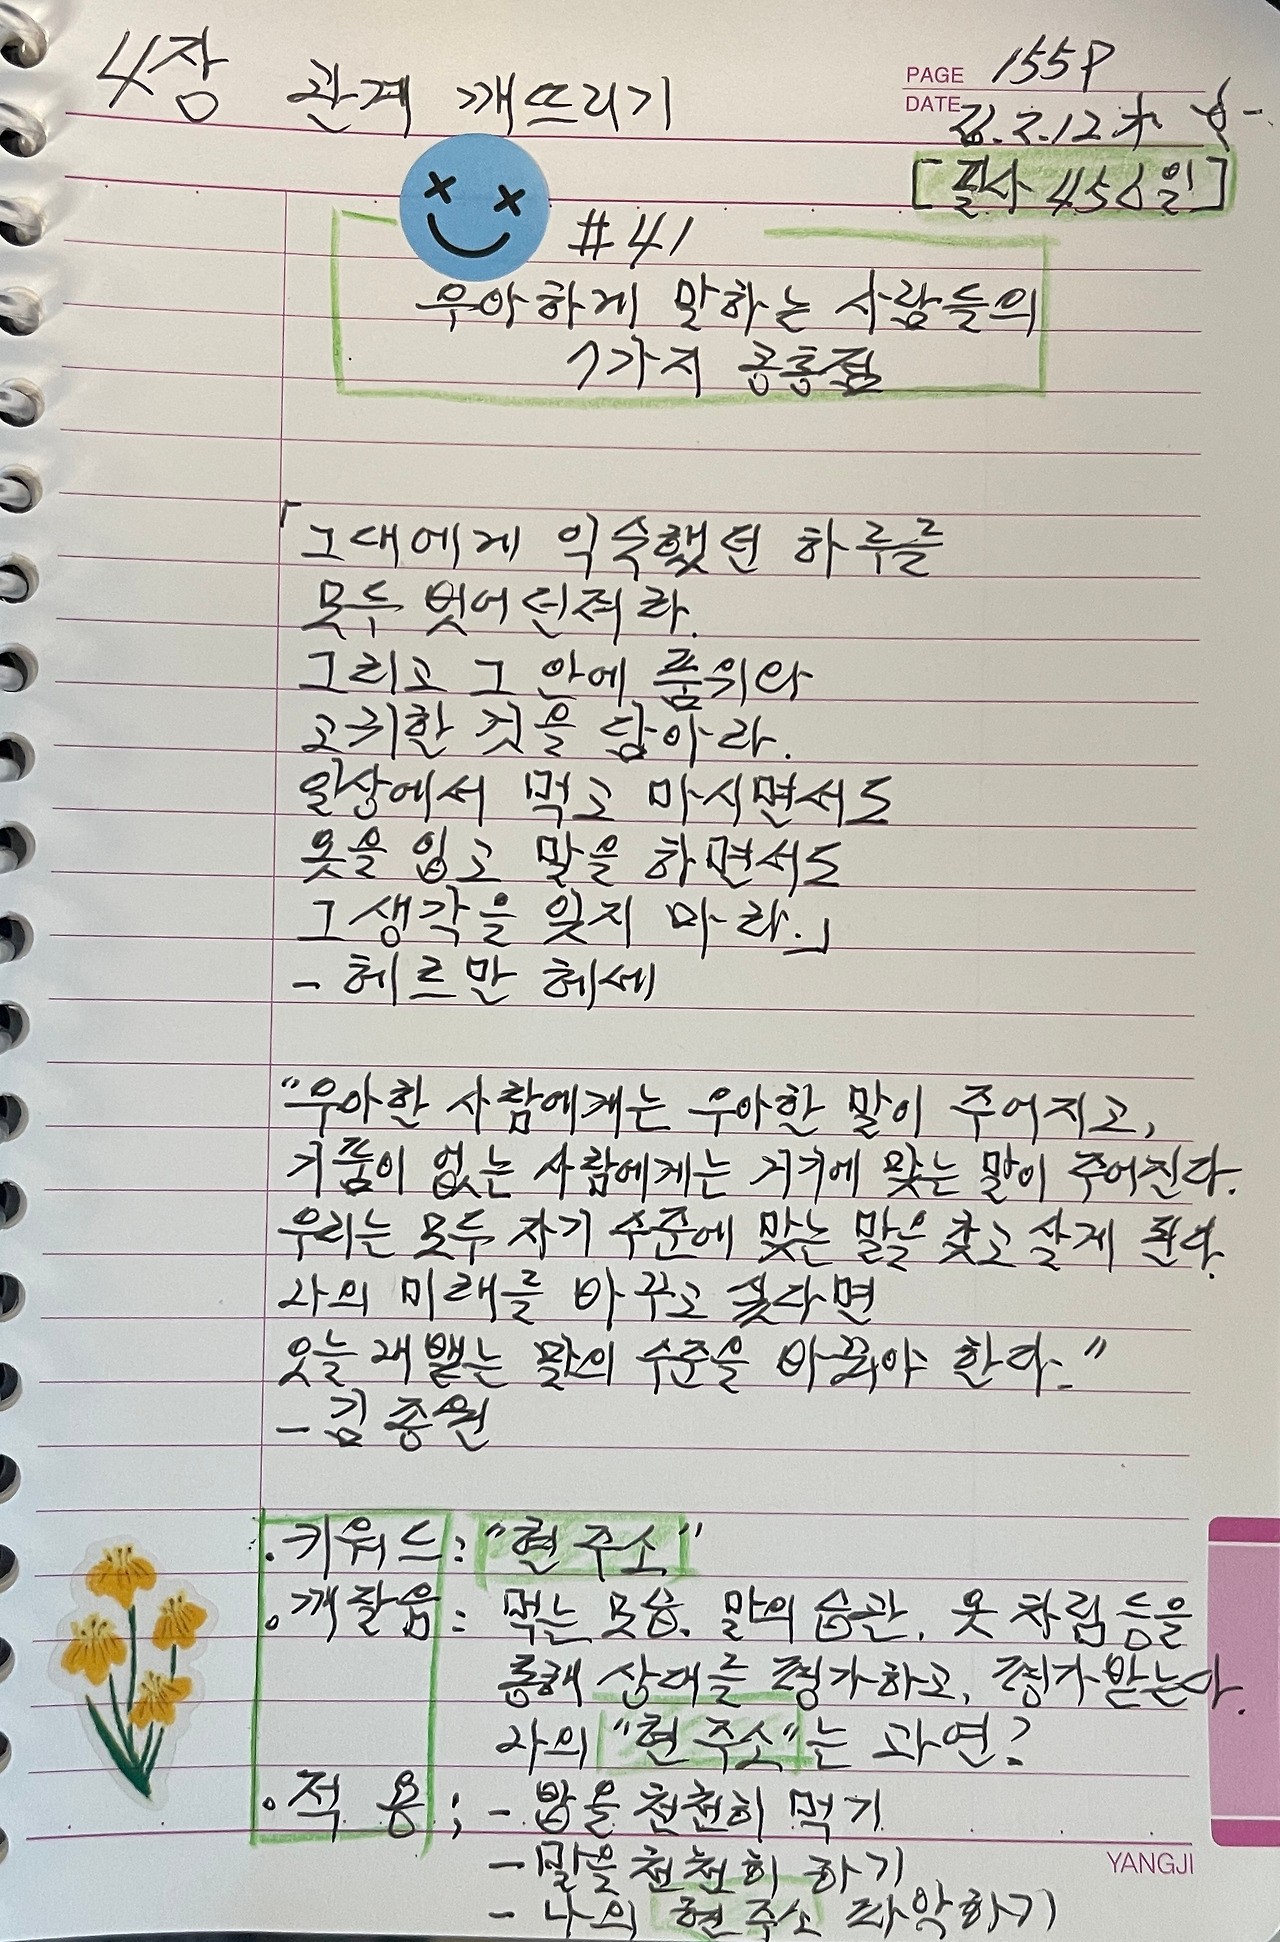 4장 관계 깨뜨리기
PAGE 155P
DATE 2.12
[필사 456일]
#41
우아하게 말하는 사람들의
7가지 공통점
「그대에게 익숙했던 하루를
모두 벗어 던져라.
그리고 그 안에 품위와
고귀한 것을 담아라.
일상에서 먹고 마시면서도
옷을 입고 말을 하면서도
그 생각을 잊지 마라.」
- 헤르만 헤세
"우아한 사람에게는 우아한 말이 주어지고,
기품이 없는 사람에게는 거기에 맞는 말이 주어진다.
우리는 모두 자기 수준에 맞는 말을 찾고 살게 된다.
나의 미래를 바꾸고 싶다면
오늘 내뱉는 말의 수준을 바꿔야 한다."
- 김종원
·키워드: "현 주소"
·깨달음: 먹는 모습. 말의 습관. 옷 차림 등을
통해 상대를 평가하고, 평가받는다.
나의 "현 주소"는 과연?
·적 용; - 밥을 천천히 먹기
- 말을 천천히 하기
- 나의 현 주소 파악하기
YANGJI